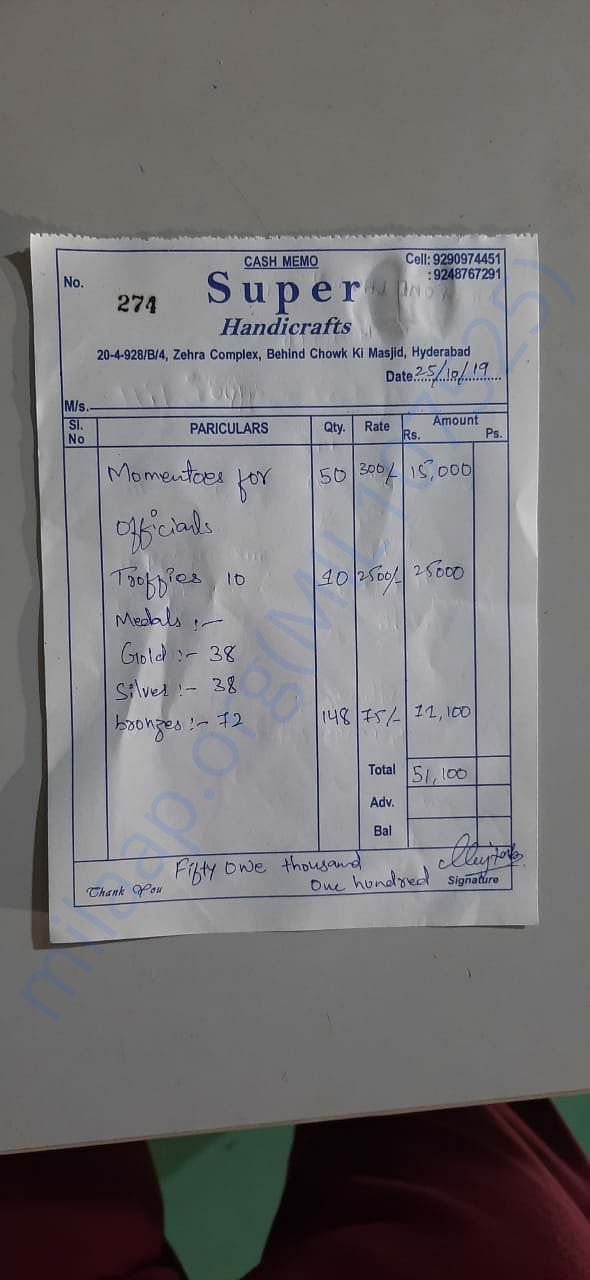 CASH MEMO
Cell: 9290974451
: 9248767291
No. 274
Super
Handicrafts
20-4-928/B/4, Zehra Complex, Behind Chowk Ki Masjid, Hyderabad
Date 25/10/19
M/s.
Sl. No PARICULARS Qty. Rate Amount Rs. Ps.
Momentoes for 50 300/- 15,000
officials
Troffies 10 10 2500/- 25000
Medals :-
Gold :- 38
Silver :- 38
bronzes :- 72 148 75/- 11,100
Total 51,100
Adv.
Bal
Fifty one thousand
one hundred
Thank You
Signature
milaap.org(MIL197525)